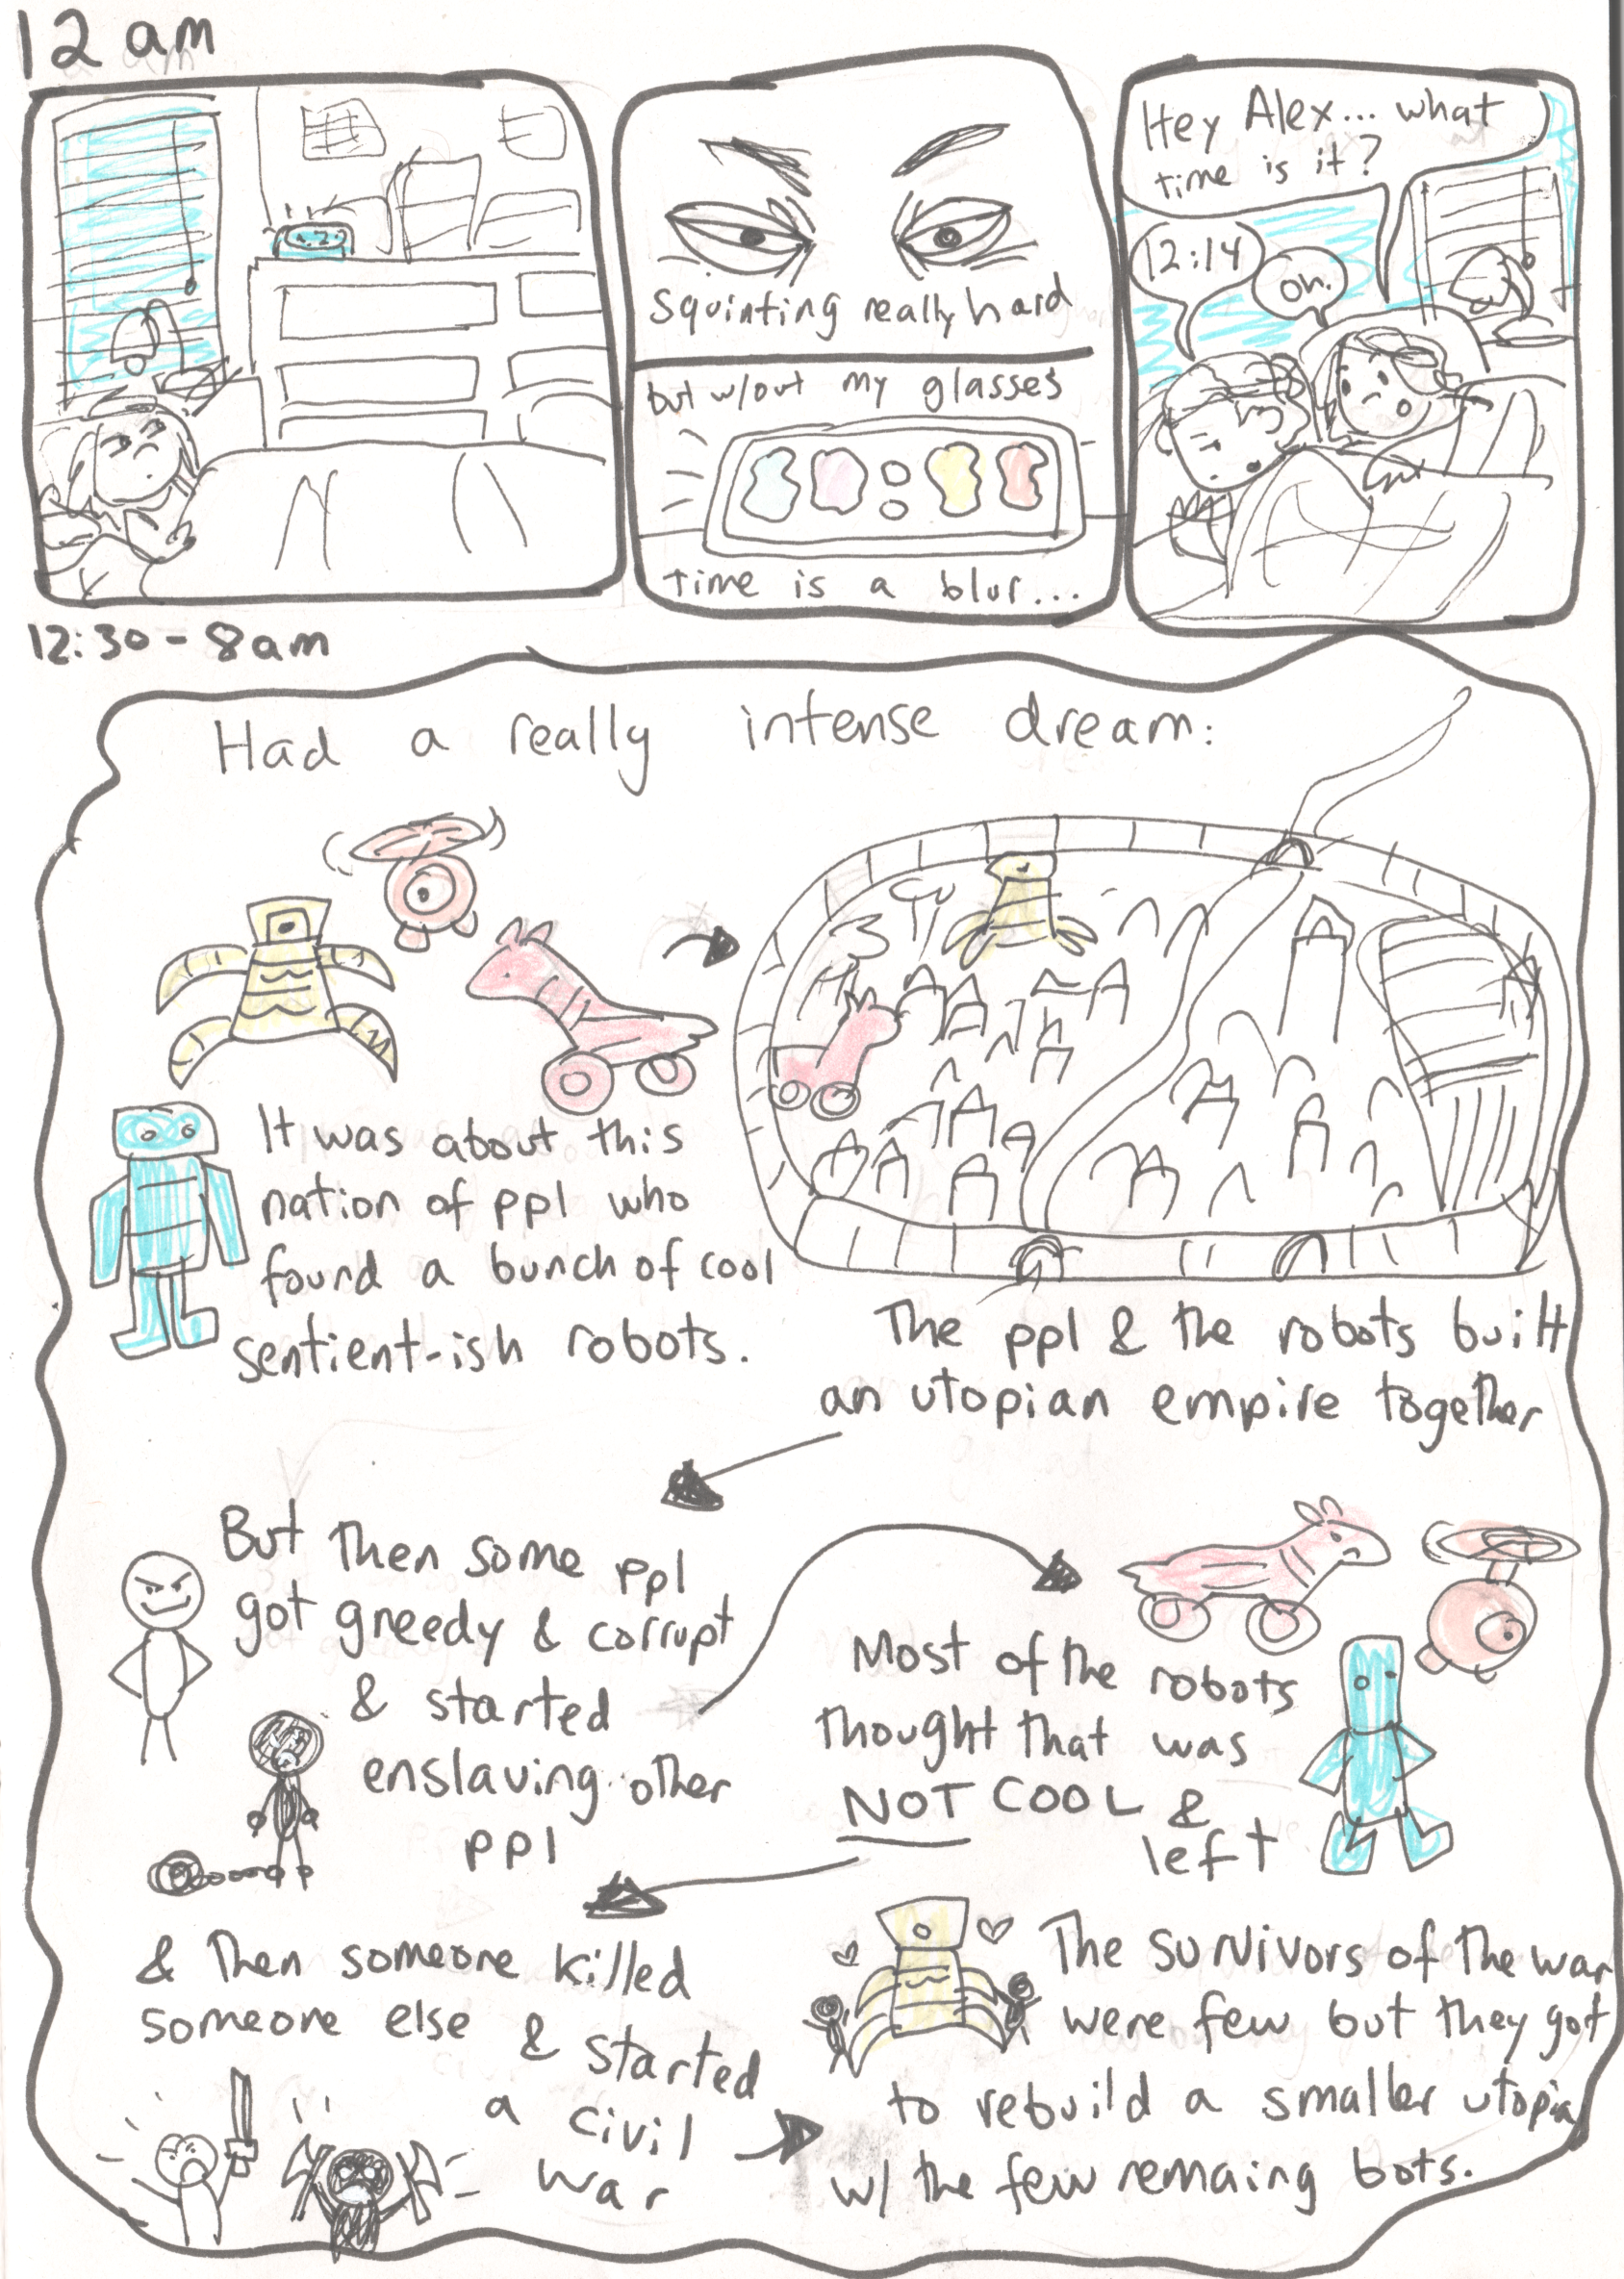 12 am
Squinting really hard
but w/out my glasses
time is a blur...
Hey Alex... what
time is it?
12:14
oh.
12:30 - 8am
Had a really intense dream:
It was about this
nation of ppl who
found a bunch of cool
sentient-ish robots.
The ppl & the robots built
an utopian empire together
But then some ppl
got greedy & corrupt
& started
enslaving other
ppl
Most of the robots
thought that was
NOT COOL &
left
& then someone killed
someone else & started
a civil
war
The survivors of the war
were few but they got
to rebuild a smaller utopia
w/ the few remaing bots.